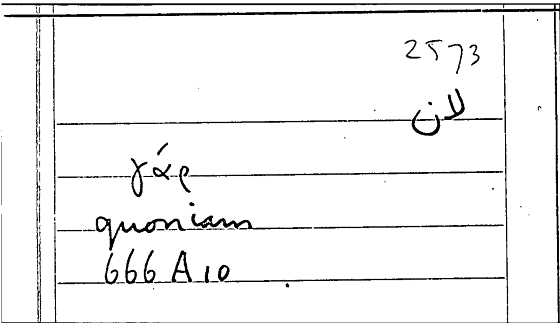 2573
لان
γάρ
quoniam
666 A 10